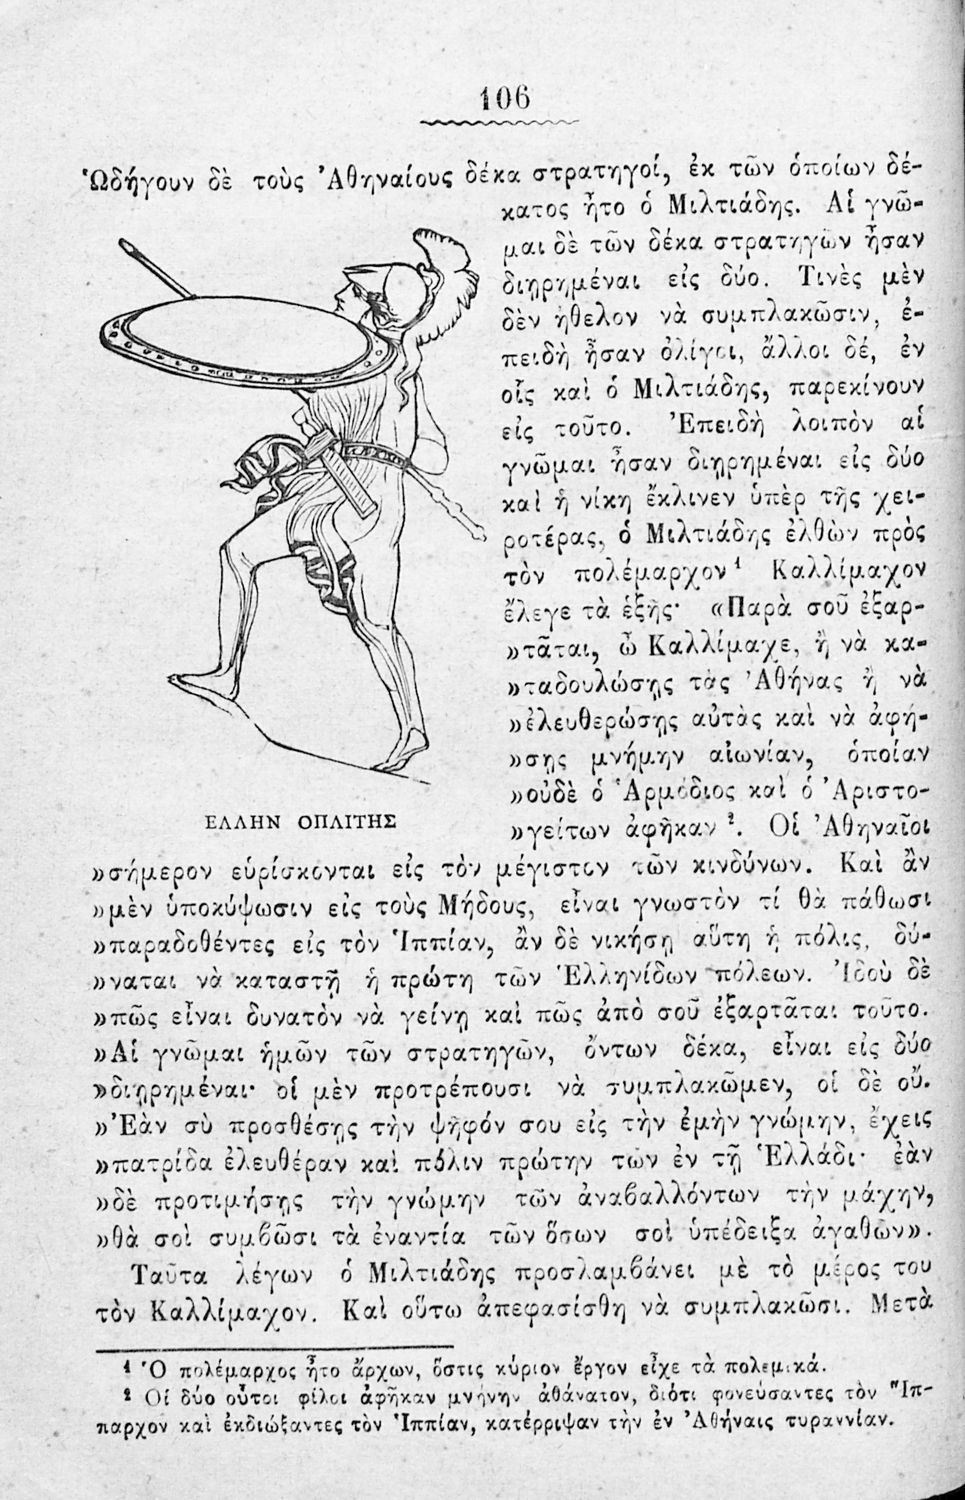 106
Ὡδήγουν δὲ τοὺς Ἀθηναίους δέκα στρατηγοί, ἐκ τῶν ὁποίων δέ-
κατος ἦτο ὁ Μιλτιάδης. Αἱ γνῶ-
μαι δὲ τῶν δέκα στρατηγῶν ἦσαν
διῃρημέναι εἰς δύο. Τινὲς μὲν
δὲν ἤθελον νὰ συμπλακῶσιν, ἐ-
πειδὴ ἦσαν ὀλίγοι, ἄλλοι δέ, ἐν
οἷς καὶ ὁ Μιλτιάδης, παρεκίνουν
εἰς τοῦτο. Ἐπειδὴ λοιπὸν αἱ
γνῶμαι ἦσαν διῃρημέναι εἰς δύο
καὶ ἡ νίκη ἔκλινεν ὑπὲρ τῆς χει-
ροτέρας, ὁ Μιλτιάδης ἐλθὼν πρὸς
τὸν πολέμαρχον ¹ Καλλίμαχον
ἔλεγε τὰ ἑξῆς· «Παρὰ σοῦ ἐξαρ-
»τᾶται, ὦ Καλλίμαχε, ἢ νὰ κα-
»ταδουλώσῃς τὰς Ἀθήνας ἢ νὰ
»ἐλευθερώσῃς αὐτὰς καὶ νὰ ἀφή-
»σῃς μνήμην αἰωνίαν, ὁποίαν
»οὐδὲ ὁ Ἁρμόδιος καὶ ὁ Ἀριστο-
»γείτων ἀφῆκαν ². Οἱ Ἀθηναῖοι
ΕΛΛΗΝ ΟΠΛΙΤΗΣ
»σήμερον εὑρίσκονται εἰς τὸν μέγιστον τῶν κινδύνων. Καὶ ἂν
»μὲν ὑποκύψωσιν εἰς τοὺς Μήδους, εἶναι γνωστὸν τί θὰ πάθωσι
»παραδοθέντες εἰς τὸν Ἱππίαν, ἂν δὲ νικήσῃ αὕτη ἡ πόλις, δύ-
»ναται νὰ καταστῇ ἡ πρώτη τῶν Ἑλληνίδων πόλεων. Ἰδοὺ δὲ
»πῶς εἶναι δυνατὸν νὰ γείνῃ καὶ πῶς ἀπὸ σοῦ ἐξαρτᾶται τοῦτο.
»Αἱ γνῶμαι ἡμῶν τῶν στρατηγῶν, ὄντων δέκα, εἶναι εἰς δύο
»διῃρημέναι· οἱ μὲν προτρέπουσι νὰ συμπλακῶμεν, οἱ δὲ οὔ.
»Ἐὰν σὺ προσθέσῃς τὴν ψῆφόν σου εἰς τὴν ἐμὴν γνώμην, ἔχεις
»πατρίδα ἐλευθέραν καὶ πόλιν πρώτην τῶν ἐν τῇ Ἑλλάδι· ἐὰν
»δὲ προτιμήσῃς τὴν γνώμην τῶν ἀναβαλλόντων τὴν μάχην,
»θὰ σοὶ συμβῶσι τὰ ἐναντία τῶν ὅσων σοὶ ὑπέδειξα ἀγαθῶν».
Ταῦτα λέγων ὁ Μιλτιάδης προσλαμβάνει μὲ τὸ μέρος του
τὸν Καλλίμαχον. Καὶ οὕτω ἀπεφασίσθη νὰ συμπλακῶσι. Μετὰ
¹ Ὁ πολέμαρχος ἦτο ἄρχων, ὅστις κύριον ἔργον εἶχε τὰ πολεμικά.
² Οἱ δύο οὗτοι φίλοι ἀφῆκαν μνήμην ἀθάνατον, διότι φονεύσαντες τὸν Ἵπ-
παρχον καὶ ἐκδιώξαντες τὸν Ἱππίαν, κατέρριψαν τὴν ἐν Ἀθήναις τυραννίαν.